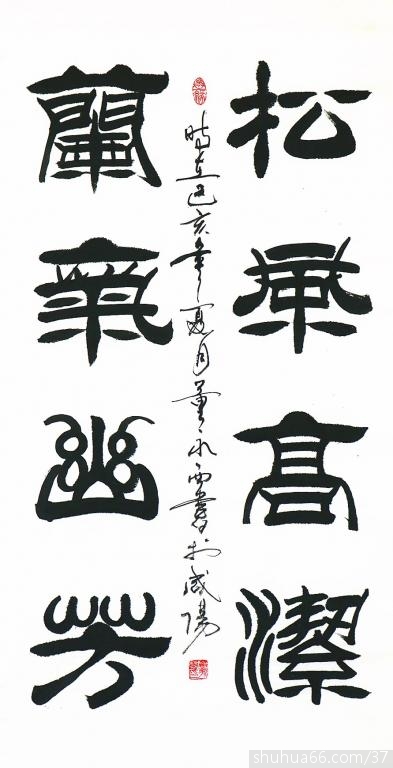 松風高潔
蘭氣幽芳
時在己亥年夏月董永西書於咸陽
shuhua66.com/37